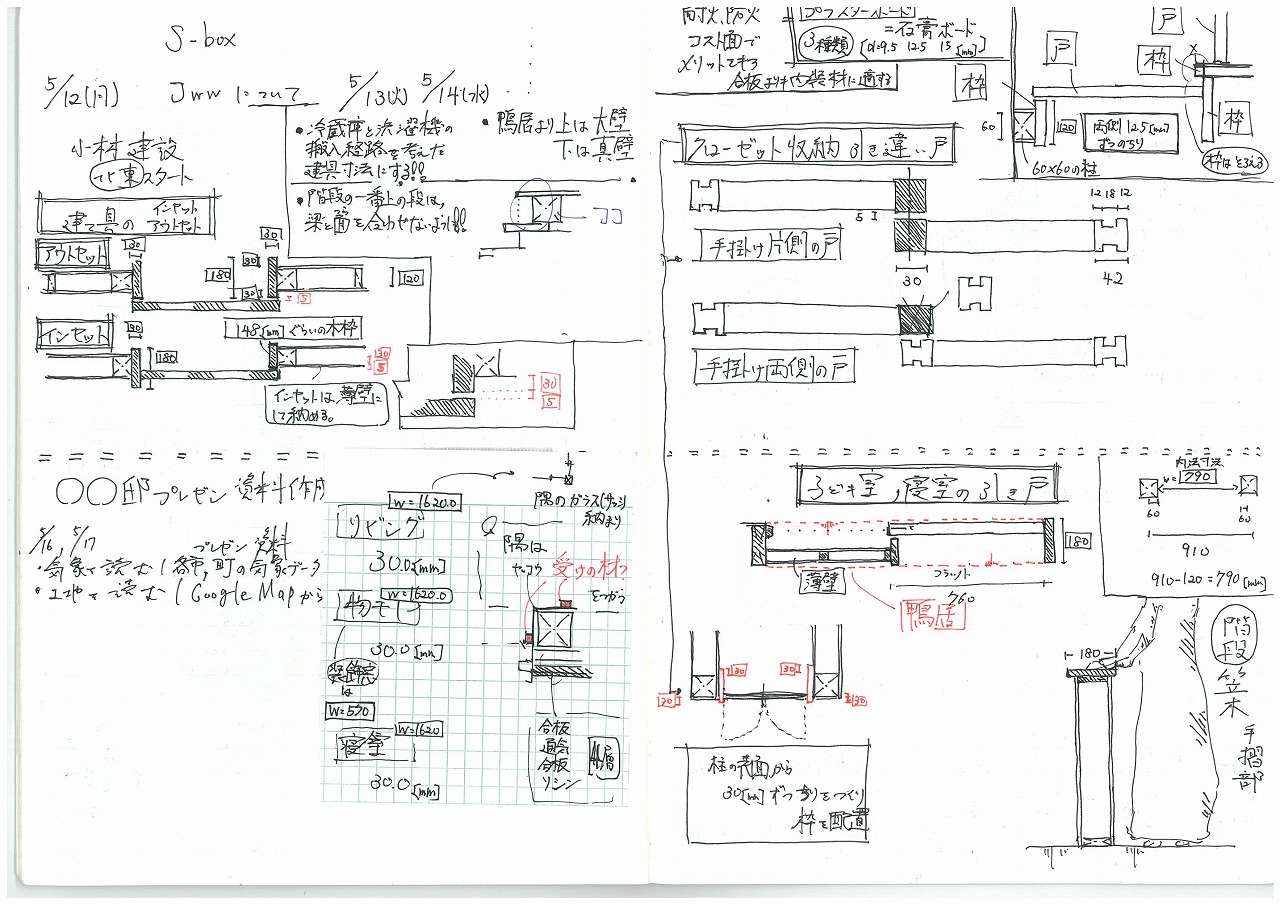 S-box
5/12(月)
Jwwについて
5/13(火)
5/14(水)
小林建設
北東スタート
・冷蔵庫と洗濯機の
搬入経路を考えた
建具寸法にする!!
・階段の一番上の段は、
梁と面を合わせないように!!
・鴨居より上は大壁
下は真壁
ココ
建て具の
インセット
アウトセット
アウトセット
30
180
30
30
5
120
インセット
30
180
148[mm]ぐらいの木枠
30
5
インセットは、薄壁に
して納める。
30
5
〇〇邸プレゼン資料作成
5/16, 5/17
プレゼン資料
・気象を読む/各市,町の気象データ
・土地を読む/Google Mapから
W=1620.0
リビング
30.0[mm]
W=1620.0
30.0[mm]
は
W=570
W=1620
寝室
30.0[mm]
隅のガラス(サッシ)
納まり
隅は
受けの材?
をつかう
合板
通気
合板
リシン
外層
耐火、防火
コスト面で
メリットである
プラスターボード
=石膏ボード
3種類
[d=9.5 12.5 15[mm]]
合板よりも内装材に適する
戸
戸
枠
枠
枠
60
120
両側12.5[mm]
ずつのちり
60×60の柱
枠はそろえる
クローゼット収納 引き違い戸
5
12 18 12
手掛け片側の戸
30
42
手掛け両側の戸
子ども室,寝室の引き戸
180
薄壁
フラット
760
鴨居
内法寸法
w=790
60
60
910
910-120=790[mm]
30
30
30
30
柱の表面から
30[mm]ずつちりをつくり
枠を配置
180
階段
笠木
手摺部